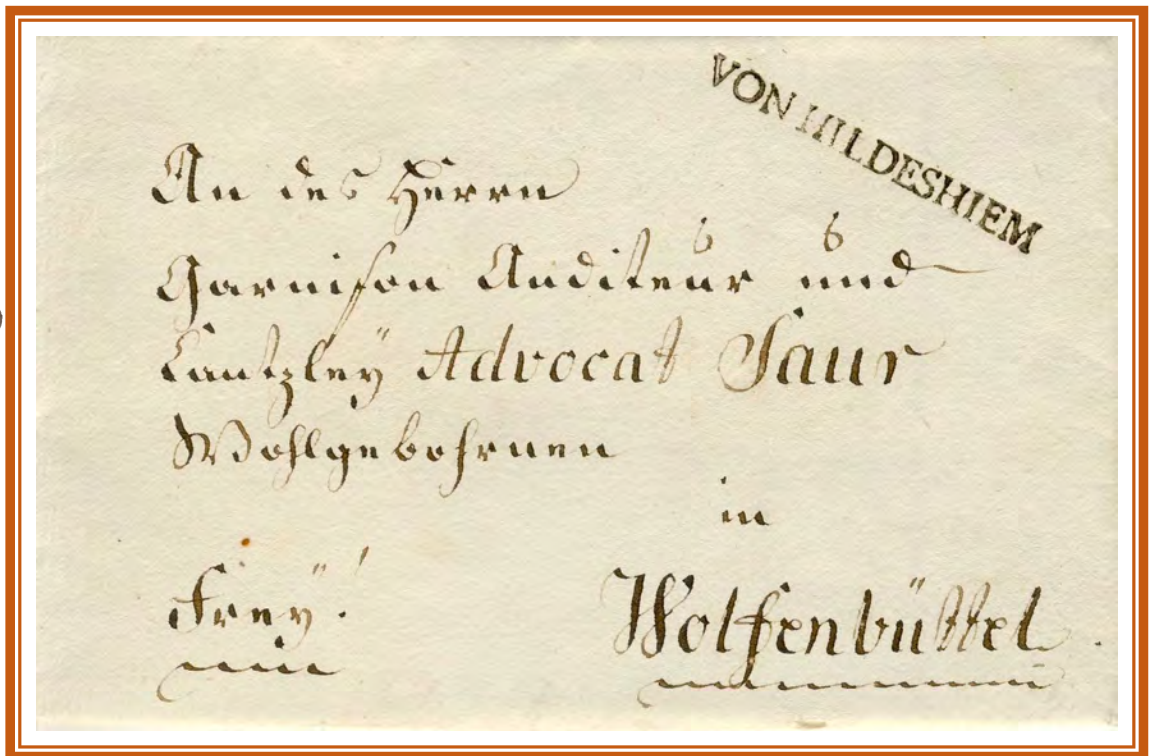 VON HILDESHIEM
An des Herrn
Garnison Auditeur und
Cantzley Advocat Saur
Wohlgebohrnen
in
Freÿ!
Wolfenbüttel